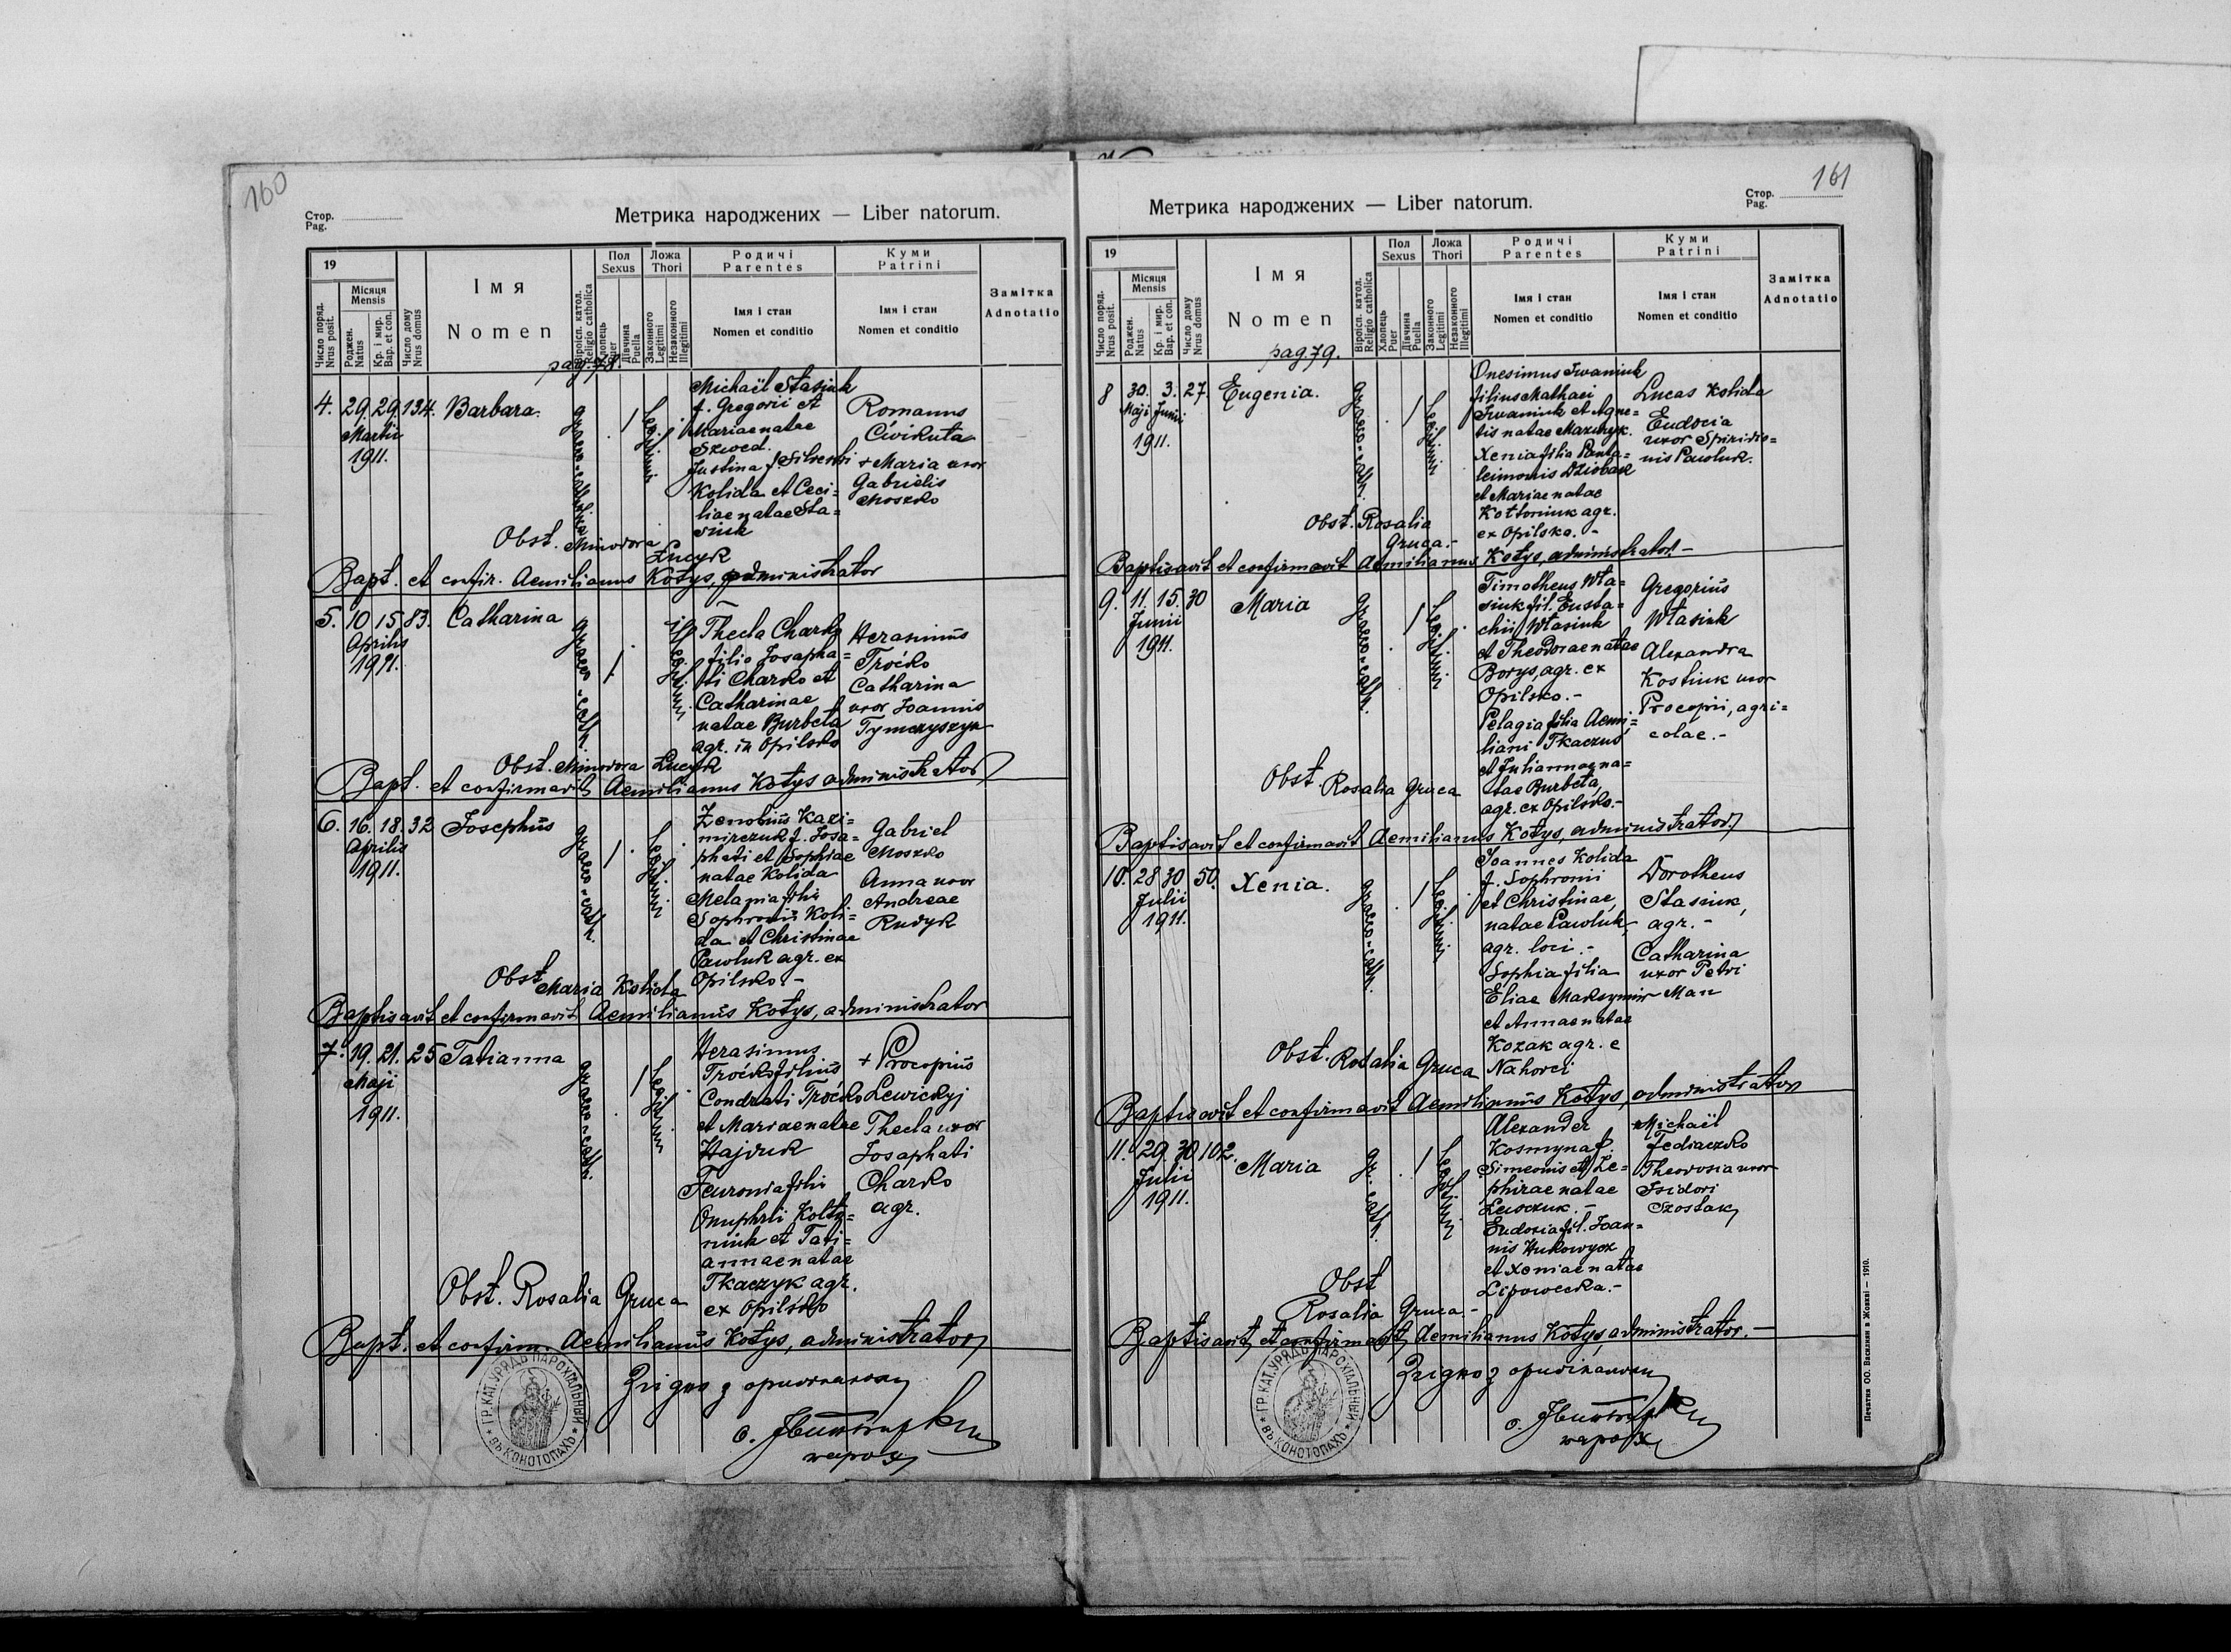 160
Стор.
Pag.
Метрика народжених — Liber natorum.
19
Число поряд.
Nrus posit.
Місяця
Mensis
Роджен.
Natus
Кр. і мир.
Bap. et con.
Число дому
Nrus domus
Імя
Nomen
pag. 78.
Віроісп. катол.
Religio catholica
Пол
Sexus
Хлопець
Puer
Дівчина
Puella
Ложа
Thori
Законного
Legitimi
Незаконного
Illegitimi
Родичі
Parentes
Імя і стан
Nomen et conditio
Куми
Patrini
Імя і стан
Nomen et conditio
Замітка
Adnotatio
4. 29. 29. 134. Barbara.
Martii
1911.
graeco-catholica
. 1 Legitimi .
Michaël Stasiuk
f. Gregorii et
Mariae natae
Szwed.
Justina f. Silvestri
Kolida et Ceci=
liae natae Sta=
siuk
Romanus
Ćwikuta
+ Maria uxor
Gabrielis
Moszko
Obst. Minodora
Łucyk
Bapt. et confir. Aemilianus Kotys, administrator
5. 10 15. 83. Catharina
Aprilis
1911.
graeco-cath.
. 1. illegitimi
Thecla Charko
filia Josapha=
ti Charko et
Catharinae
natae Burbeła
agr. in Opilsko
Herasimus
Troćko
Catharina
uxor Joannis
Tymczyszyn
Obst. Minodora Łucyk
Bapt. et confirmavit Aemilianus Kotys administrator
6. 16. 18. 32 Josephus
Aprilis
1911.
graeco-cath.
1. Legitimi .
Zenobius Kazi=
mirczuk f. Josa=
phati et Sophiae
natae Kolida
Melania filia
Sophronii Koli=
da et Christinae
Pawluk agr. ex
Opilsko.-
Gabriel
Moszko
Anna uxor
Andreae
Rudyk
Obst. Maria Kolida
Baptisavit et confirmavit Aemilianus Kotys, administrator
7. 19. 21. 25 Tatianna
Maji
1911.
graeco-cath.
. 1 Legitimi .
Herasimus
Troćko filius
Condrati Troćko
et Mariae natae
Hajduk
Feuronia filia
Onuphrii Kołto=
niuk et Tati=
annae natae
Tkaczyk agr.
ex Opilsko
+ Procopius
Lewickyj
Thecla uxor
Josaphati
Charko
agr.
Obst. Rosalia Gruca
Bapt. et confirm. Aemilianus Kotys, administrator
ГР. КАТ. УРЯДЪ ПАРОХІАЛЬНЫЙ
ВЪ КОНОТОПАХЪ
Згідно з оригіналом
о.
парох
161
Стор.
Pag.
Метрика народжених — Liber natorum.
19
Число поряд.
Nrus posit.
Місяця
Mensis
Роджен.
Natus
Кр. і мир.
Bap. et con.
Число дому
Nrus domus
Імя
Nomen
pag 79.
Віроісп. катол.
Religio catholica
Пол
Sexus
Хлопець
Puer
Дівчина
Puella
Ложа
Thori
Законного
Legitimi
Незаконного
Illegitimi
Родичі
Parentes
Імя і стан
Nomen et conditio
Куми
Patrini
Імя і стан
Nomen et conditio
Замітка
Adnotatio
8 30. 3. 27. Eugenia.
Maji Junii
1911.
graeco-cath.
. 1 Legitimi
Onesimus Iwaniuk
filius Mathaei
Iwaniuk et Agne=
tis natae Mazuryk.
Xenia filia Panta=
leimonis Dziobak
et Mariae natae
Kołtoniuk agr.
ex Opilsko.-
Lucas Kolida
Eudocia
uxor Spiridio=
nis Pawluk.
Obst. Rosalia
Gruca.-
Baptisavit et confirmavit Aemilianus Kotys, administrator.-
9. 11. 15. 30 Maria
Junii
1911.
graeco-cath.
. 1 Legitimi .
Timotheus Wła=
siuk fil. Eusta=
chii Własiuk
et Theodorae natae
Borys, agr. ex
Opilsko.-
Pelagia filia Aemi=
liani Tkaczus
et Juliannae na=
tae Burbeła,
agr. ex Opilsko.-
Gregorius
Własiuk
Alexandra
Kostiuk uxor
Procopii, agri=
colae.-
Obst. Rosalia Gruca
Baptisavit et confirmavit Aemilianus Kotys, administrator.
10. 28 30 50. Xenia.
Julii
1911.
graeco-cath.
. 1 Legitimi .
Joannes Kolida
f. Sophronii
et Christinae,
natae Pawluk,
agr. loci.-
Sophia filia
Eliae Maksymiw
et Annae natae
Kozak agr. e
Nahorci
Dorotheus
Stasiuk,
agr.-
Catharina
uxor Petri
Man
Obst. Rosalia Gruca
Baptisavit et confirmavit Aemilianus Kotys, administrator
11. 29. 30 102. Maria
Julii
1911.
gr. cath.
. 1 Legitimi .
Alexander
Kosmyna f.
Simeonis et Ze=
phirae natae
Lewczuk.-
Eudoxia fil. Joan=
nis Hukowycz
et Xeniae natae
Lipowecka.-
Michaël
Fediaczko
Theodosia uxor
Isidori
Szostak
Obst
Rosalia Gruca.-
Baptisavit et confirmavit Aemilianus Kotys, administrator.-
ГР. КАТ. УРЯДЪ ПАРОХІАЛЬНЫЙ
ВЪ КОНОТОПАХЪ
Згідно з оригіналом
о.
парох
Печатня ОО. Василиян в Жовкві — 1910.